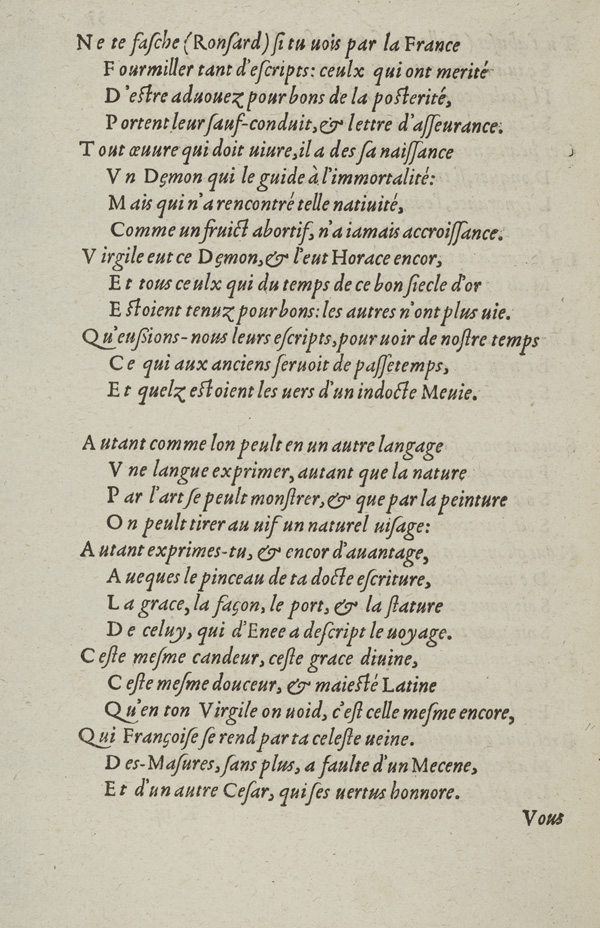 Ne te faſche (Ronſard) ſi tu uois par la France
Fourmiller tant d'eſcripts: ceulx qui ont merité
D'eſtre aduouez pour bons de la poſterité,
Portent leur ſauf-conduit, & lettre d'aſſeurance.
Tout œuure qui doit uiure, il a des ſa naiſſance
Vn Dęmon qui le guide à l'immortalité:
Mais qui n'a rencontré telle natiuité,
Comme un fruict abortif, n'a iamais accroiſſance.
Virgile eut ce Dęmon, & l'eut Horace encor,
Et tous ceulx qui du temps de ce bon ſiecle d'or
Eſtoient tenuz pour bons: les autres n'ont plus uie.
Qu'euſsions-nous leurs eſcripts, pour uoir de noſtre temps
Ce qui aux anciens ſeruoit de paſſetemps,
Et quelz eſtoient les uers d'un indocte Meuie.
Autant comme lon peult en un autre langage
Vne langue exprimer, autant que la nature
Par l'art ſe peult monſtrer, & que par la peinture
On peult tirer au uif un naturel uiſage:
Autant exprimes-tu, & encor d'auantage,
Aueques le pinceau de ta docte eſcriture,
La grace, la façon, le port, & la ſtature
De celuy, qui d'Enee a deſcript le uoyage.
Ceſte meſme candeur, ceſte grace diuine,
Ceſte meſme douceur, & maieſté Latine
Qu'en ton Virgile on uoid, c'eſt celle meſme encore,
Qui Françoiſe ſe rend par ta celeſte ueine.
Des-Maſures, ſans plus, a faulte d'un Mecene,
Et d'un autre Ceſar, qui ſes uertus honnore.
Vous